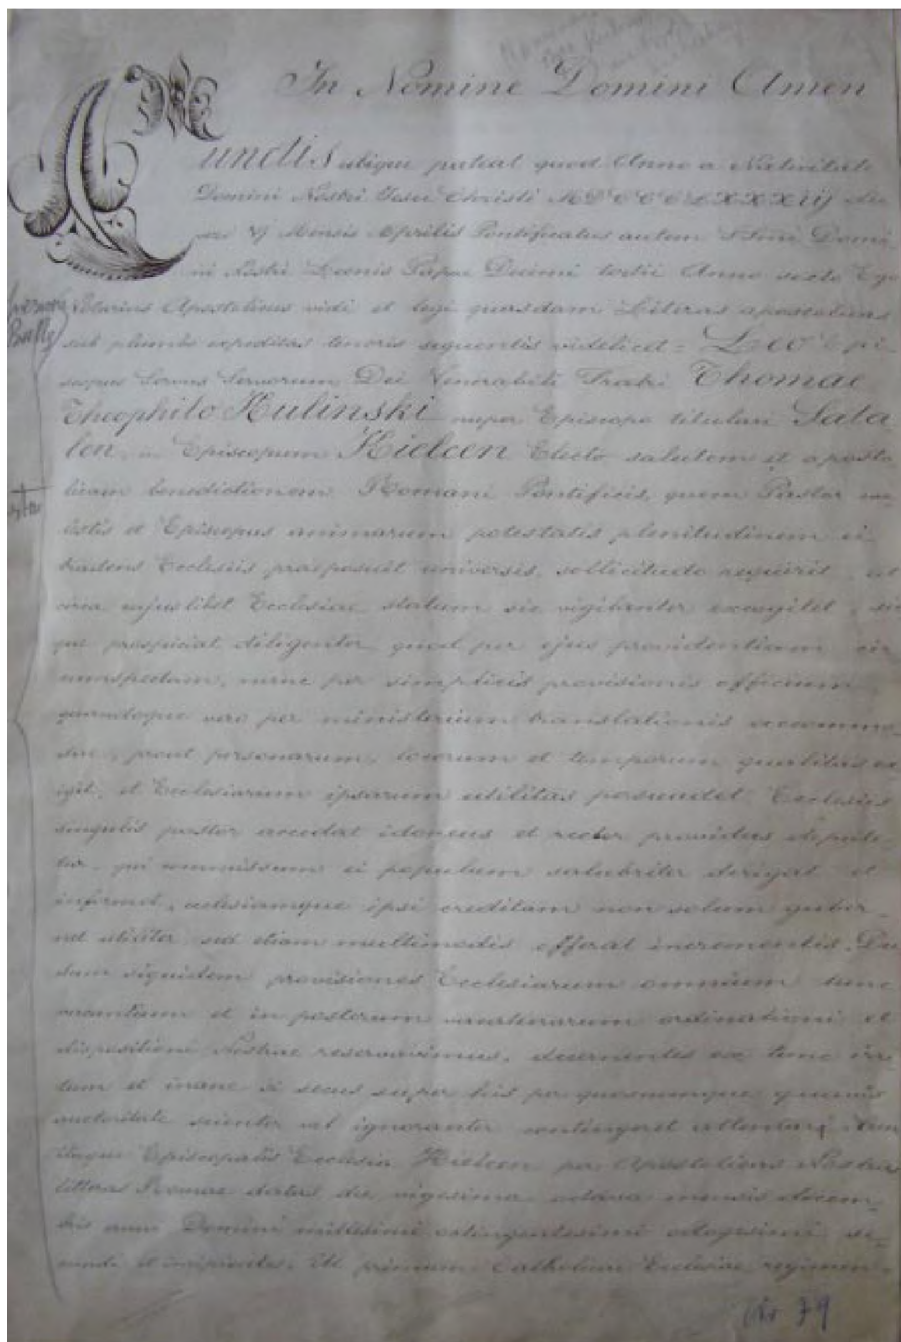 In Nomine Domini Amen
Cunctis ubique pateat quod Anno a Nativitate
Domini Nostri Jesu Christi MDCCCLXXXIIJ die
vero Mensis Aprilis Pontificatus autem SSmi Domi
ni Nostri Leonis Papae Decimi tertii Anno sexto Ego
Notarius Apostolicus vidi et legi quasdam Literas apostolicas
sub plumbo expeditas tenoris sequentis videlicet = Leo Epi-
scopus Servus Servorum Dei Venerabili Fratri Thomae
Theophilo Kulinski nuper Episcopo titulari Sata
len, in Episcopum Kielcen Electo salutem et aposto
licam benedictionem Romani Pontificis, quem Pastor coe
lestis et Episcopus animarum potestatis plenitudinem ei
tradens Ecclesiis praeposuit universis, sollicitudo requirit, ut
circa cujuslibet Ecclesiae statum sic vigilanter excogitet, sic
que prospiciat diligenter quod per ejus providentiam cir
cumspectam, nunc per simplicis provisionis officium
quandoque vero per ministerium translationis accommo
prout personarum, locorum et temporum qualitas ex
igit, et Ecclesiarum ipsarum utilitas persuadet, Ecclesiis
singulis pastor accedat idoneus et rector providus depute
tur, qui commissum ei populum salubriter dirigat et
informet, eclesiamque ipsi creditam non solum guber
net utiliter sed etiam multimodis efferat incrementis. Du
dum siquidem provisiones Ecclesiarum omnium tunc
vacantium et in posterum vacaturarum ordinationi et
dispositioni Nostrae reservavimus, decernentes ex tunc irri
tum et inane si secus super his per quoscumque quavis
auctoritate scienter vel ignoranter contingeret attentari, Cum
itaque Episcopalis Ecclesia Kielcen per Apostolicas Nostras
litteras Romae datas die vigesima octava mensis Decem
bris anni Domini millesimi octingentesimi octogesimi se-
cundi et incipientes: Ad primum Catholicae Ecclesiae regimen
No 79